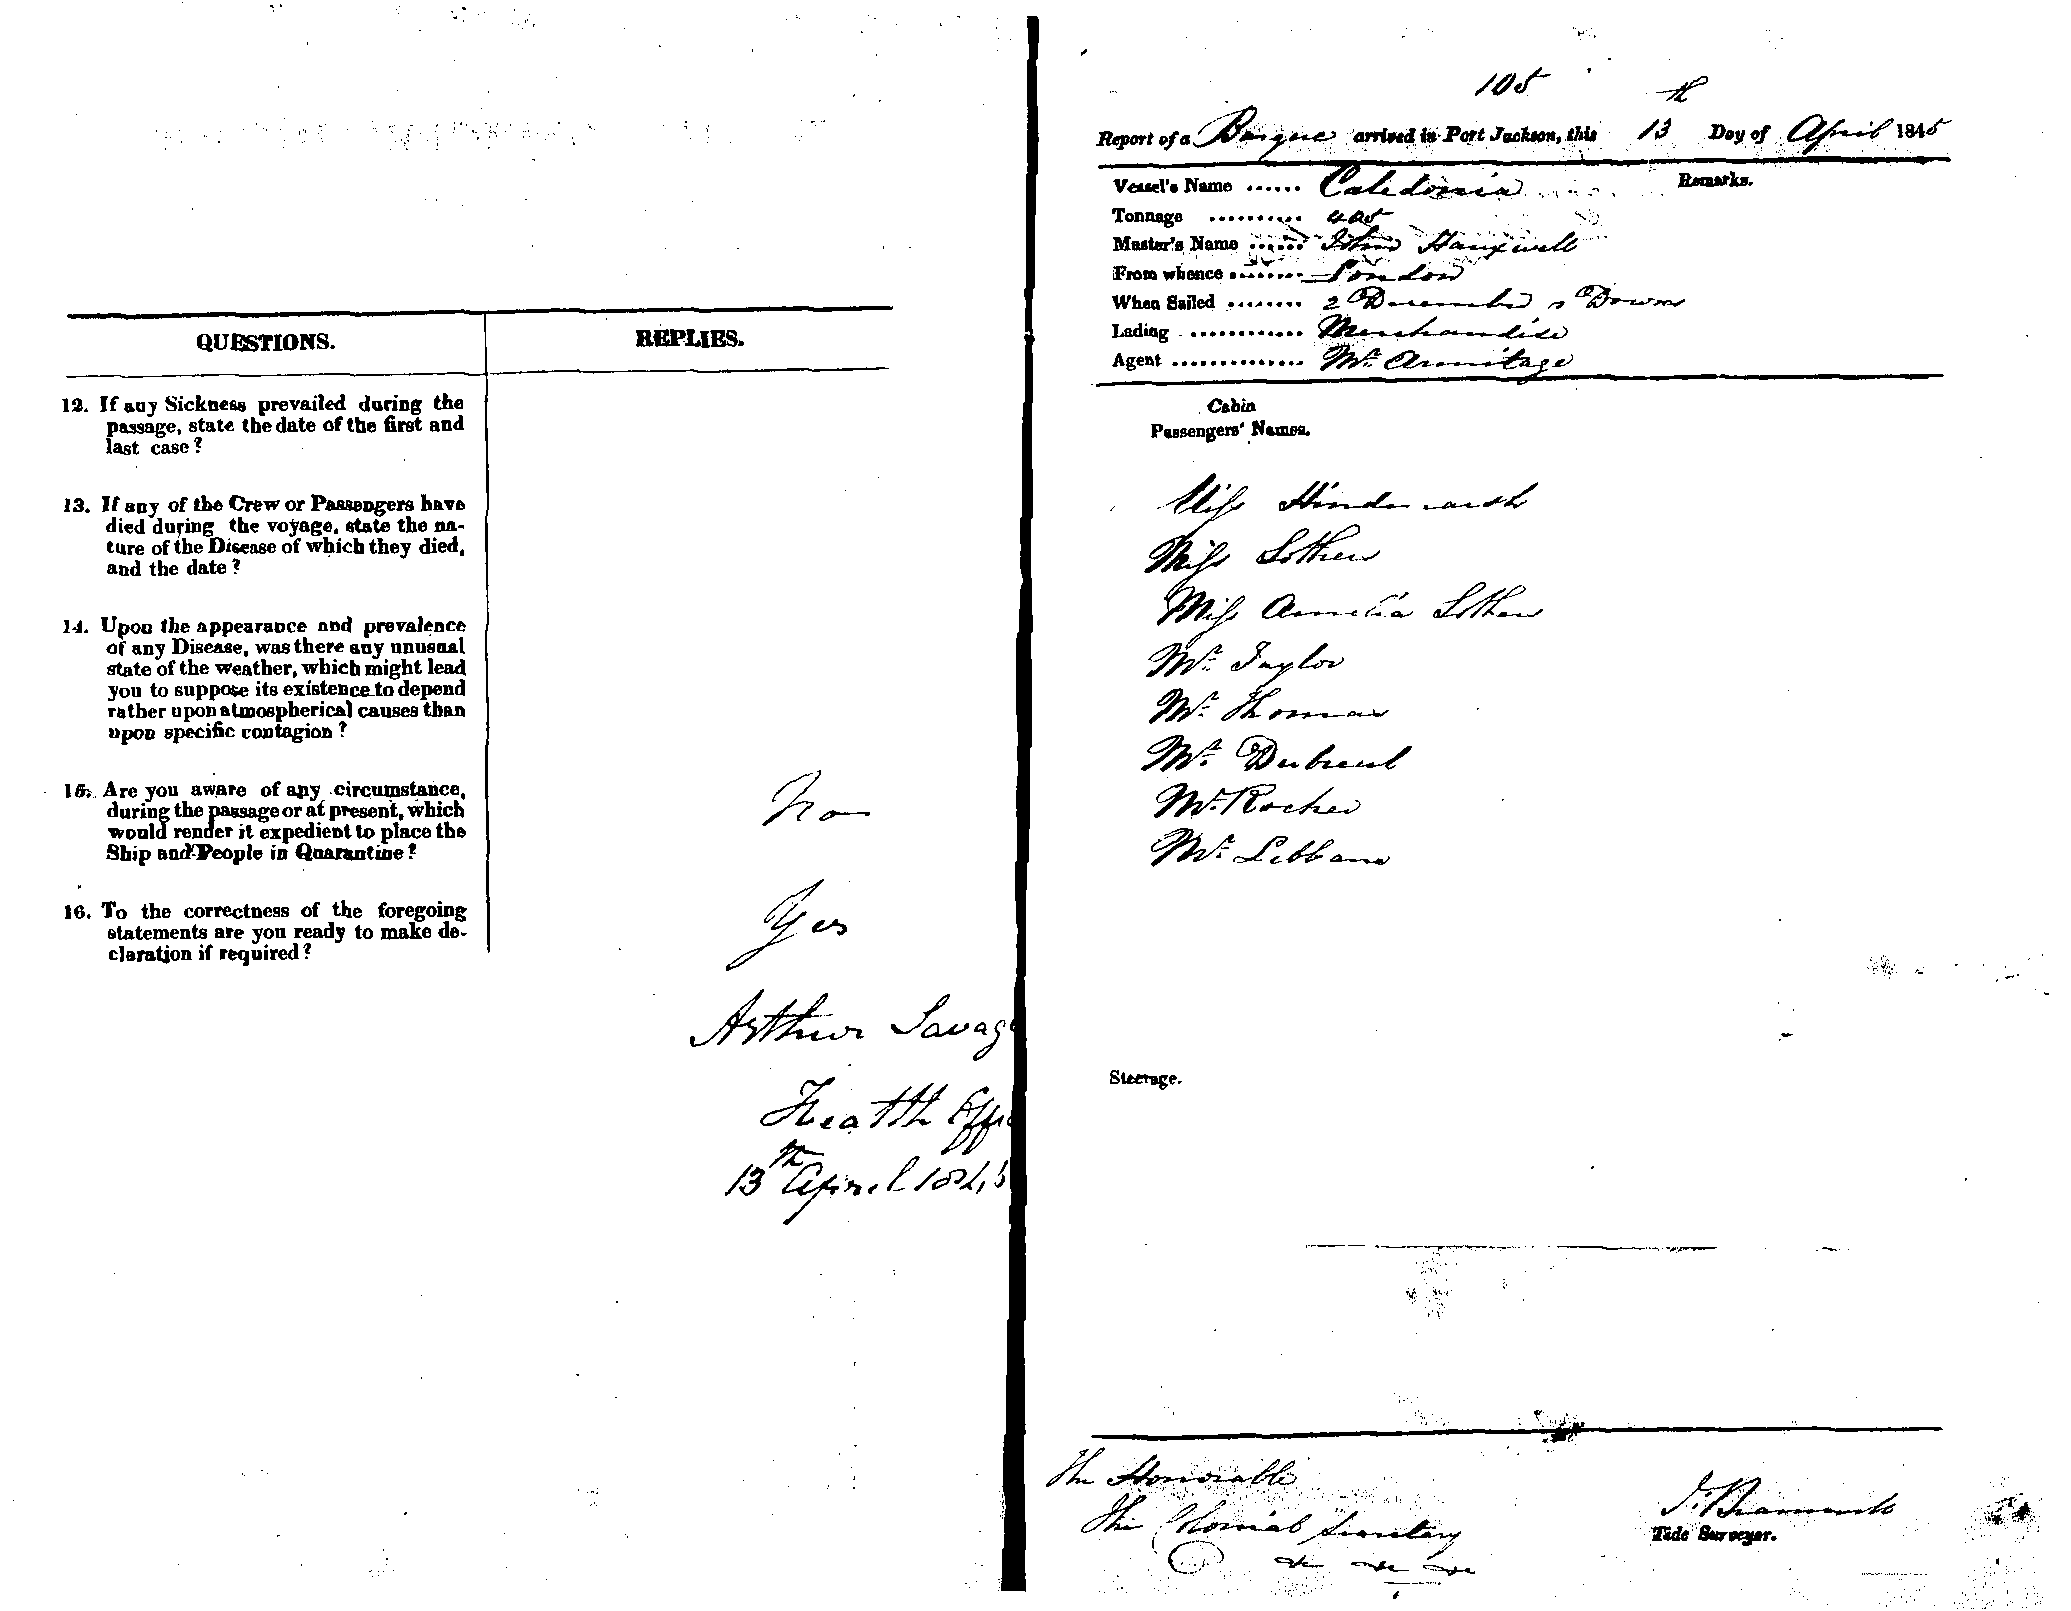 QUESTIONS.
REPLIES.
12. If any Sickness prevailed during the
passage, state the date of the first and
last case?
13. If any of the Crew or Passengers have
died during the voyage, state the na-
ture of the Disease of which they died,
and the date?
14. Upon the appearance and prevalence
of any Disease, was there any unusual
state of the weather, which might lead
you to suppose its existence to depend
rather upon atmospherical causes than
upon specific contagion?
15. Are you aware of any circumstance,
during the passage or at present, which
would render it expedient to place the
Ship and People in Quarantine?
No
16. To the correctness of the foregoing
statements are you ready to make de-
claration if required?
Yes
Arthur Savag
Health Offic
13th April 1845
105
Report of a Barque arrived in Port Jackson, this 13th Day of April 1845
Vessel's Name ...... Caledonia
Remarks.
Tonnage .......... 405
Master's Name ...... John
From whence ........ London
When Sailed ........ 2 December Downs
Lading ............ Merchandise
Agent .............. Mr. Armitage
Cabin
Passengers' Names.
Miss Hindmarsh
Miss Lothen
Miss Amelia Lothen
Mr. Taylor
Mr. Thomas
Mr. Dubreul
Mr. Rocher
Mr.
Steerage.
The Honorable
The Colonial Secretary
&c &c &c
Tide Surveyor.